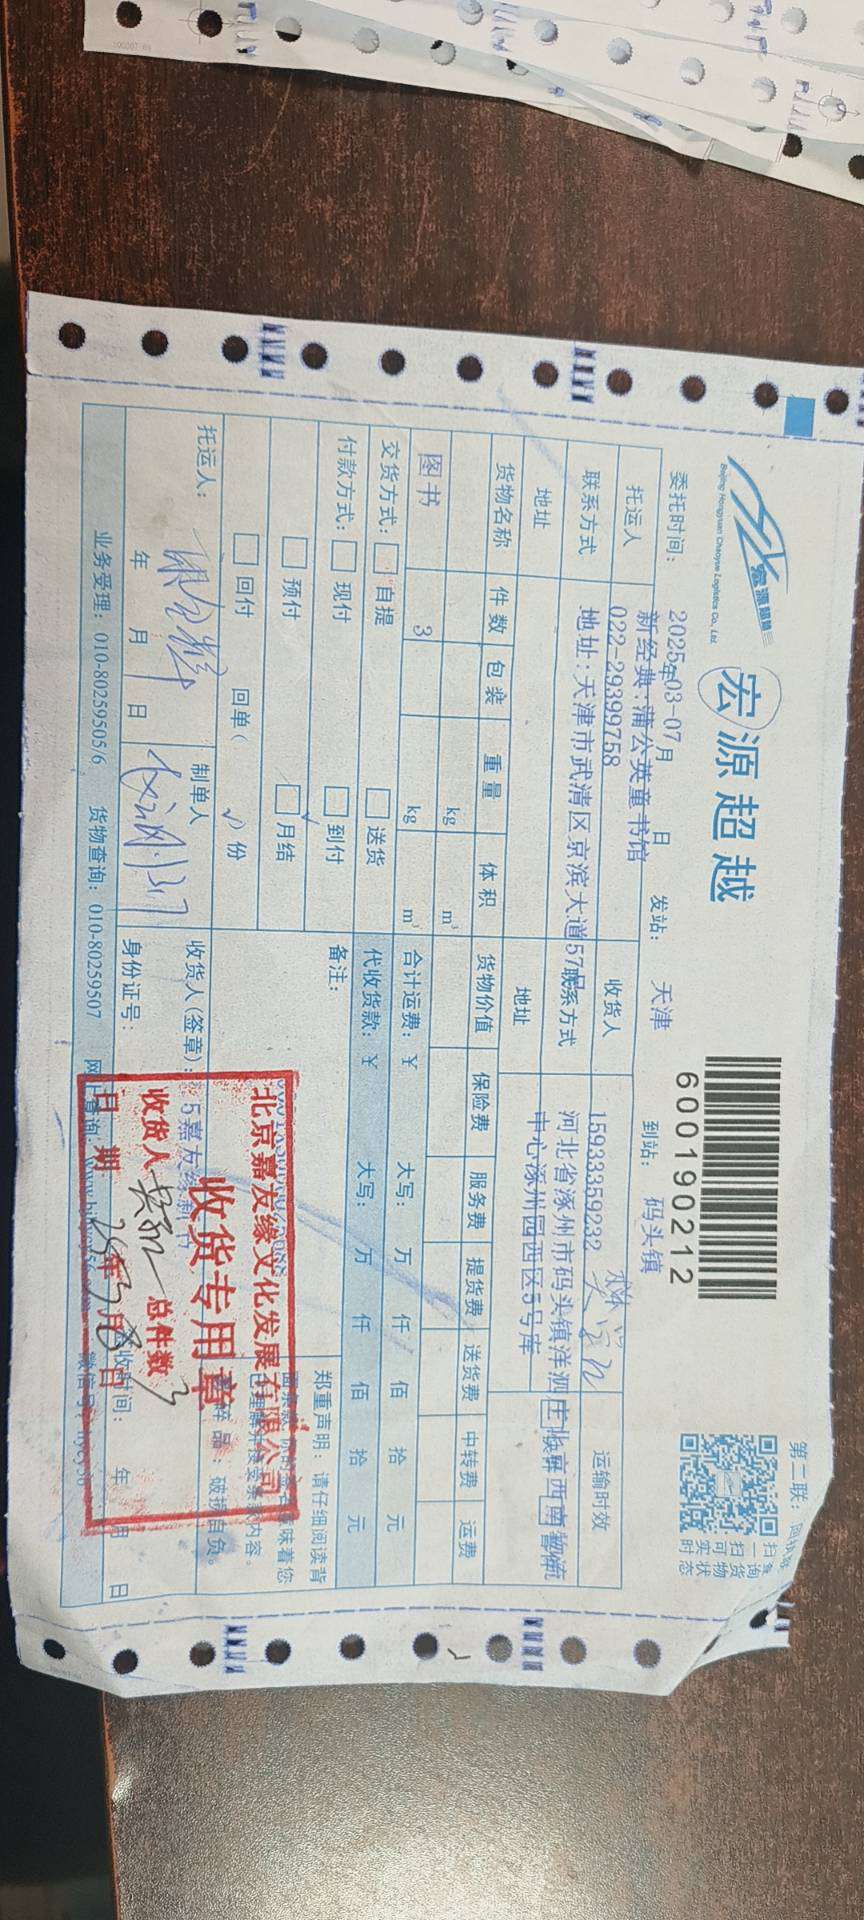 宏源超越
Beijing Hongyuan Chaoyue Logistics Co., Ltd.
宏源超越
600190212
第二联：
扫一扫
查询货物
可实时状态
委托时间： 2025年03-07月 日 发站： 天津 到站： 码头镇
托运人 新经典·蒲公英童书馆 收货人 运输时效
联系方式 022-29399758 联系方式 15933359232
地址 地址：天津市武清区京滨大道57号 地址 河北省涿州市码头镇洋泗庄北京西南物流
中心涿州园西区5号库
货物名称 件数 包装 重量 体积 货物价值 保险费 服务费 提货费 送货费 中转费 运费
kg m³
图书 3 kg m³ 合计运费：¥ 大写： 万 仟 佰 拾 元
交货方式： 自提 送货 代收货款：¥ 大写： 万 仟 佰 拾 元
付款方式： 现付 到付 备注：
预付 月结
回付 回单( √ )份
郑重声明：请仔细阅读背
味着您
内容。
破损自负。
托运人： 制单人 收货人(签章)： 5嘉友缘
年 月 日 身份证号： 时间： 年 月 日
业务受理：010-80259505/6 货物查询：010-80259507 网上查询：
北京嘉友缘文化发展有限公司
收货专用章
收货人 总件数 3
日期 25年3月8日